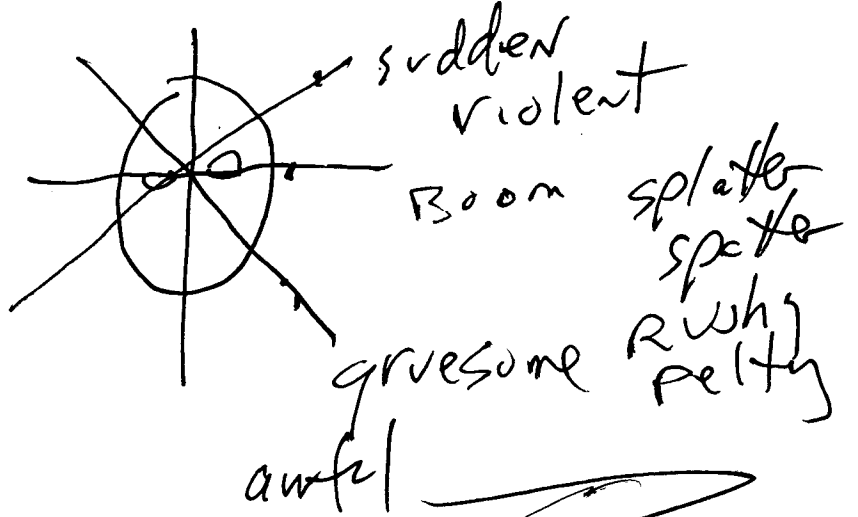 sudden
violent
Boom
splatter
spatter
Rushy
pelty
gruesome
awful